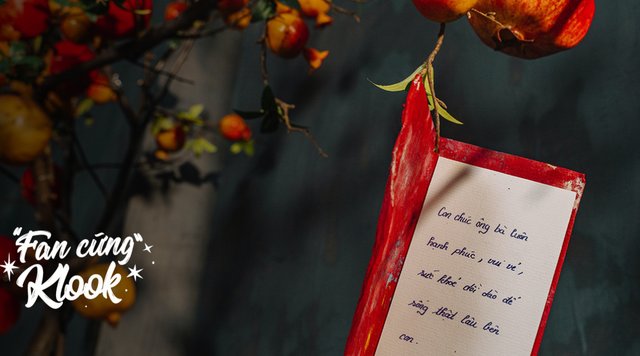 "Fan cứng"
Klook
Con chúc ông bà luôn
hạnh phúc, vui vẻ,
sức khoẻ dồi dào để
sống thật lâu bên
con.